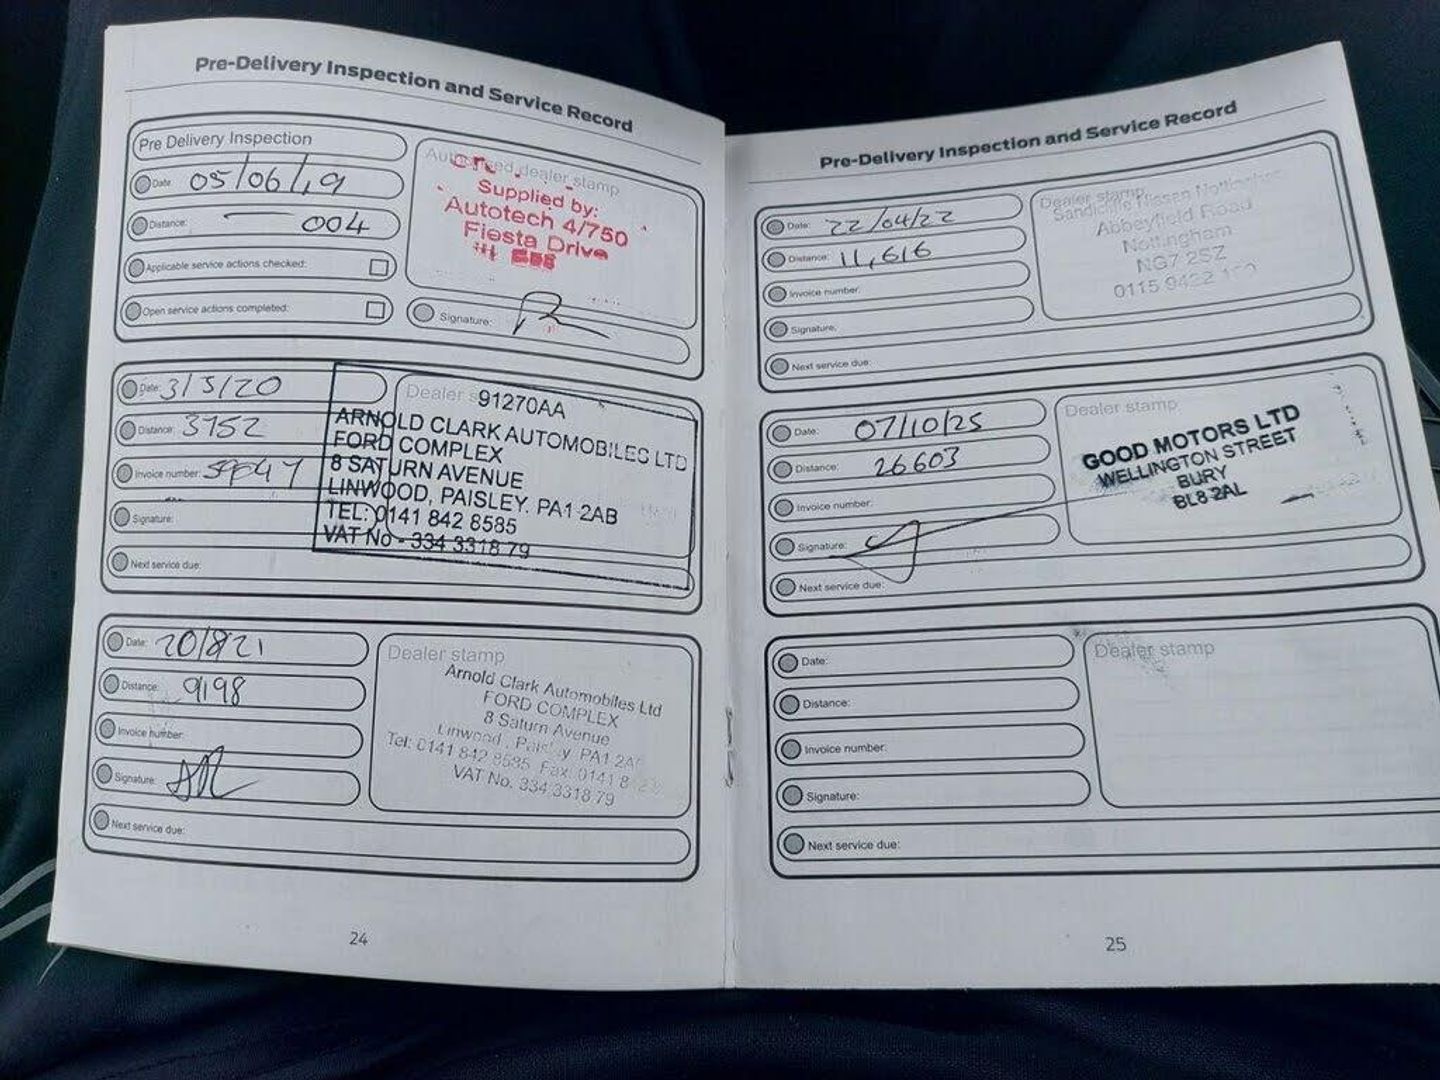 Pre-Delivery Inspection and Service Record
Pre Delivery Inspection
Date: 05/06/19
Distance: 004
Applicable service actions checked:
Open service actions completed:
Authorised dealer stamp
Supplied by:
Autotech 4/750
Fiesta Drive
Signature:
Date: 3/3/20
Distance: 3752
Invoice number:
Signature:
Next service due:
Dealer
91270AA
ARNOLD CLARK AUTOMOBILES LTD
FORD COMPLEX
8 SATURN AVENUE
LINWOOD, PAISLEY. PA1 2AB
TEL: 0141 842 8585
VAT No - 334 3318 79
Date: 20/8/21
Distance: 9198
Invoice number:
Signature:
Next service due:
Dealer stamp
Arnold Clark Automobiles Ltd
FORD COMPLEX
8 Saturn Avenue
Linwood, Paisley PA1 2A
Tel: 0141 842 8585 Fax: 0141
VAT No. 334 3318 79
24
Pre-Delivery Inspection and Service Record
Date: 22/04/22
Distance: 11,616
Invoice number:
Signature:
Next service due:
Dealer stamp
Sandicliffe Nissan Nottingham
Abbeyfield Road
Nottingham
NG7 2SZ
0115 9422
Date: 07/10/25
Distance: 26603
Invoice number:
Signature:
Next service due:
Dealer stamp
GOOD MOTORS LTD
WELLINGTON STREET
BURY
BL8 2AL
Date:
Distance:
Invoice number:
Signature:
Next service due:
Dealer stamp
25